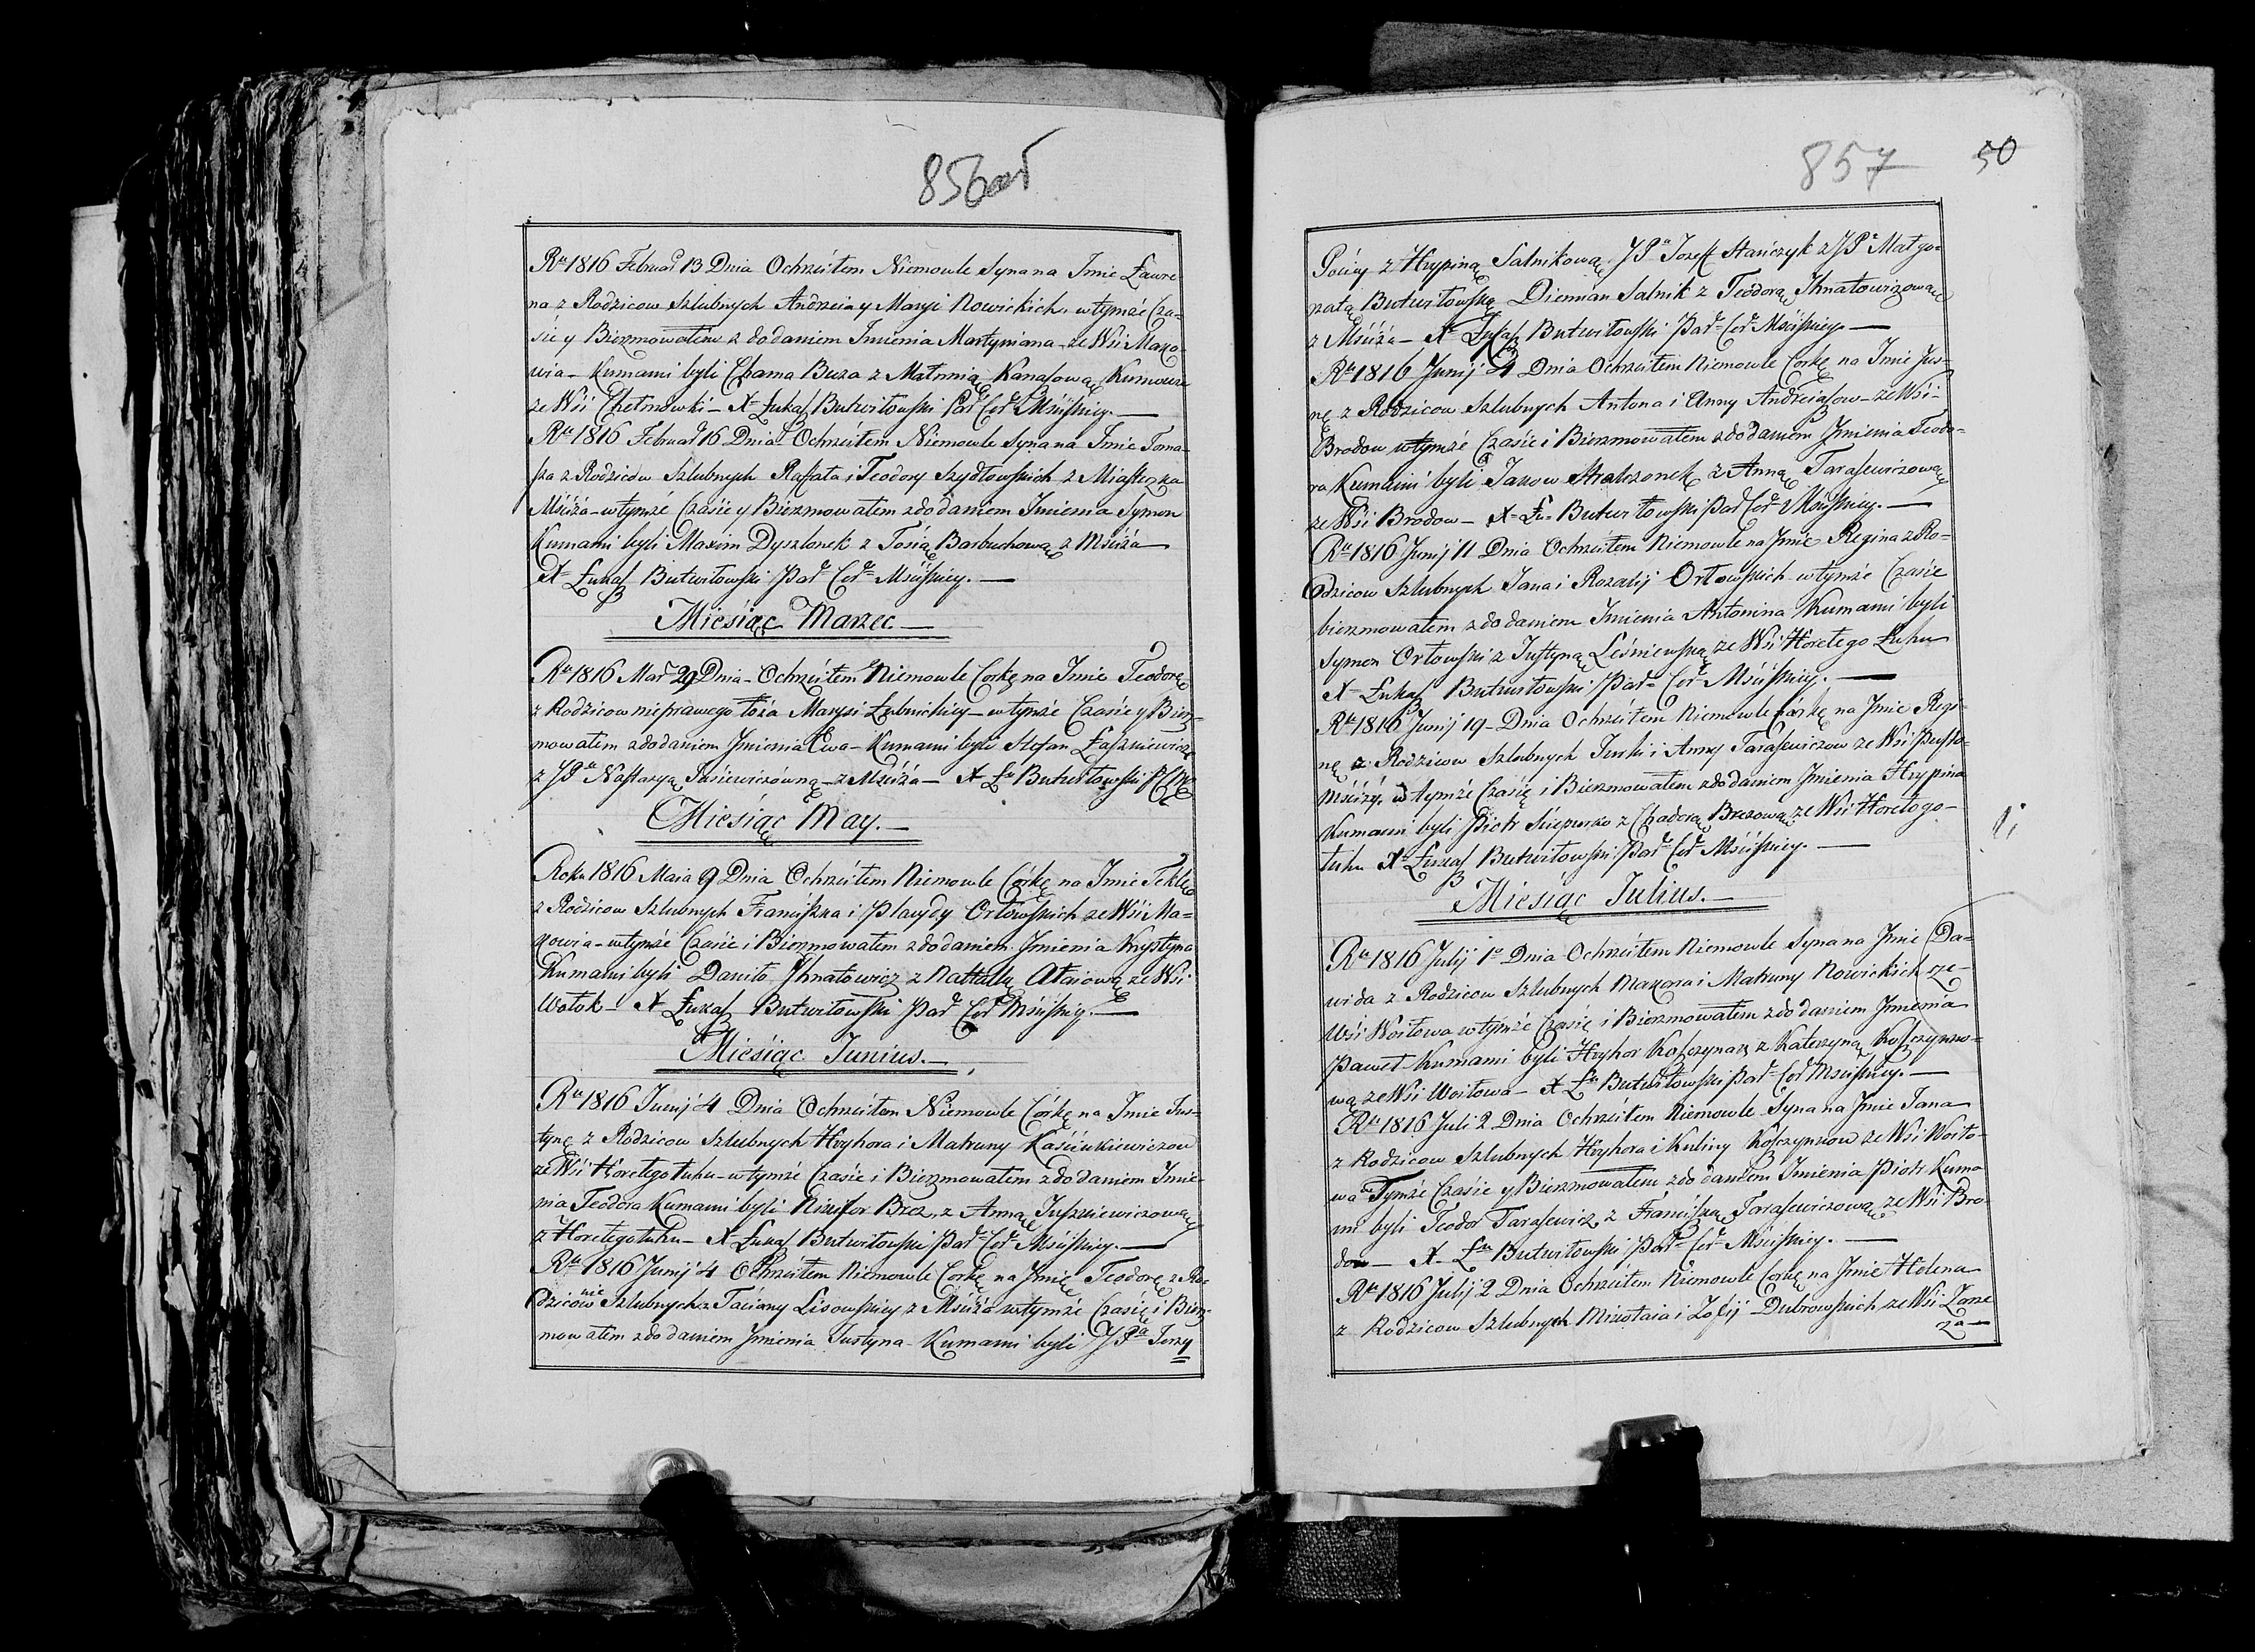 856об
Rku 1816 Februar 13 Dnia Ochrzciłem Niemowle Syna na Imie Ławre
na z Rodzicow Szlubnych Andrzeia y Maryi Nowickich, wtymże Cza-
sie y Bierzmowałem z dodaniem Imienia Martyniana ze Wsi Mako-
wia - Kumami byli Chama Buza z Matruną Kanasową Kumowie
ze Wsi Chełmowki - X Łukasz Butwiłowski Par Cer Mściskiey. —
Rku 1816 Februar 16 Dnia Ochrzciłem Niemowle Syna na Imie Toma-
sza z Rodzicow Szlubnych Raffała i Teodory Szydłowskich z Miasteczka
Mściża - wtymże Czasie y Bierzmowałem z dodaniem Imienia Symon
Kumami byli Maxim Dyszlonek z Tosią Barbuchową z Mściża
X Łukasz Butwiłowski Par Cer Mściskiey. —
Miesiąc Marzec —
Rku 1816 Mar 29 Dnia - Ochrzciłem Niemowle Corkę na Imie Teodorę
z Rodzicow nieprawego łoża Marysi Łubnickiey - wtymże Czasie y Bierz-
mowałem z dodaniem Imienia Ewa - Kumami byli Stefan Łaszkiewicz
z JPa Nastazyą Jusiewiczówną - z Mściża - X Łu Butwiłowski
Miesiąc May. —
Roku 1816 Maia 9 Dnia Ochrzciłem Niemowle Córkę na Imie Teklę
z Rodzicow Szlubnych Franciszka i Placydy Orłowskich ze Wsi Ma-
kowia - wtymże Czasie i Bierzmowałem z dodaniem Imienia Krystyna
Kumami byli Daniło Ihnatowicz z Nattalką Ałaiową ze Wsi
Wołok - X Łukasz Butwiłowski Par Cer Mściskiey. —
Miesiąc Junius. —
Rku 1816 Junij 4 Dnia Ochrzciłem Niemowle Córkę na Imie Jus-
tynę z Rodzicow Szlubnych Hryhora i Matruny Kasciukiewiczow
ze Wsi Horełego łuhu - wtymże Czasie i Bierzmowałem z dodaniem Imie-
nia Teodora Kumami byli Nikifor Brez, z Anną Juszkiewiczową
z Horełego łuhu - X Łukasz Butwiłowski Par Cer Mściskiey. —
Rku 1816 Junij 4 Ochrzciłem Niemowle Corkę na Imie Teodorę z Ro-
dzicow nie Szlubnych z Taciany Lisowskiey z Mściża wtymże Czasie i Bierz-
mowałem z dodaniem Imienia Justyna - Kumami byli JPa Jerzy
857
50
z Hrypiną Salnikową, JPa Jozeff Stańczyk z JPa Małgo-
rzatą Butwiłowską Diemian Salnik z Teodorą Ihnatowiczową
z Mściża - X Łukasz Butwiłowski Par Cer Mściskiey. —
Rku 1816 Junij 4 Dnia Ochrzciłem Niemowle Córkę na Imie Jus-
nę z Rodzicow Szlubnych Antona i Anny Andrejasow - ze Wsi -
Brodow wtymże Czasie i Bierzmowałem z dodaniem Imienia Teodo-
ra Kumami byli Jakow Stralczonek z Anną Tarasewiczową
ze Wsi Brodow - X Łu Butwiłowski Par Cer Mściskiey. —
Rku 1816 Junij 11 Dnia Ochrzciłem Niemowle na Imie Regina z Ro-
dzicow Szlubnych Jana i Rozalij Orłowskich wtymże Czasie
bierzmowałem z dodaniem Imienia Antonina Kumami byli
Symon Orłowski z Justyną Leśniewską ze Wsi Horełego Łuhu
X Łukasz Butwiłowski Par Cer Mściskiey. —
Rku 1816 Junij 19 - Dnia Ochrzciłem Niemowle Córkę na Imie Regi-
nę z Rodzicow Szlubnych Jurki i Anny Tarasewiczow ze Wsi Pusto-
mściży, wtymże Czasie i Bierzmowałem z dodaniem Imienia Hrypina
Kumami byli Piotr Sciepurko z Chadorą Brezową ze Wsi Horełego -
łuhu X Łukasz Butwiłowski Par Cer Mściskiey. —
Miesiąc Julius. —
Rku 1816 Julij 1o Dnia Ochrzciłem Niemowle Syna na Imie Da-
wida z Rodzicow Szlubnych Makara i Matruny Nowickich ze -
Wsi Woiłowa wtymże Czasie i Bierzmowałem z dodaniem Imienia
Paweł Kumami byli Hryhor Koszczynaz z Katerzyną Koszczynko-
wą ze Wsi Woiłowa - X Łu Butwiłowski Par Cer Mściskiey. —
Rku 1816 Juli 2 Dnia Ochrzciłem Niemowle Syna na Imie Jana
z Rodzicow Szlubnych Hryhora i Kuliny Koszczynkow ze Wsi Woiło-
wa w Tymże Czasie y Bierzmowałem z dodaniem Imienia Piotr Kuma
mi byli Teodor Tarasewicz z Franciszką Tarasewiczową ze Wsi Bro-
dow - X Łu Butwiłowski Par Cer Mściskiey. —
Rku 1816 Julij 2 Dnia Ochrzciłem Niemowle Corkę na Imie Helena
z Rodzicow Szlubnych Mikołaia i Zofij Dubrowskich ze Wsi Zarze
za —